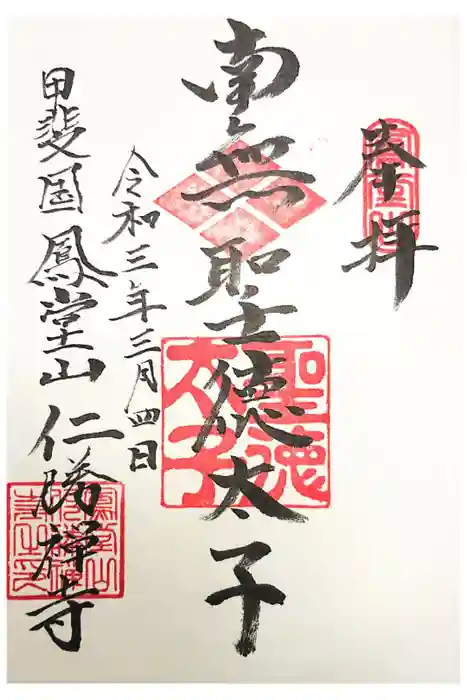 奉拝
南無聖徳太子
聖徳
太子
令和三年三月四日
甲斐国鳳凰山仁勝禅寺